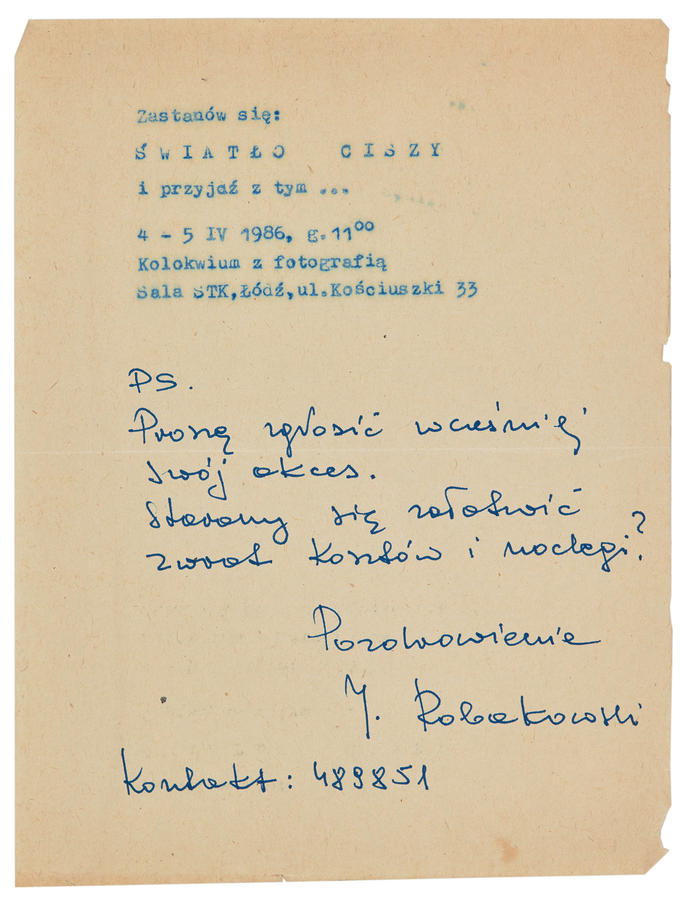 Zastanów się:
ŚWIATŁO CISZY
i przyjdź z tym ...
4 - 5 IV 1986, g.11⁰⁰
Kolokwium z fotografią
Sala STK,Łódź,ul.Kościuszki 33
PS.
Proszę zgłosić wcześniej
swój akces.
Staramy się załatwić
zwrot kosztów i noclegi?
Pozdrowienie
J. Robakowski
Kontakt: 489851